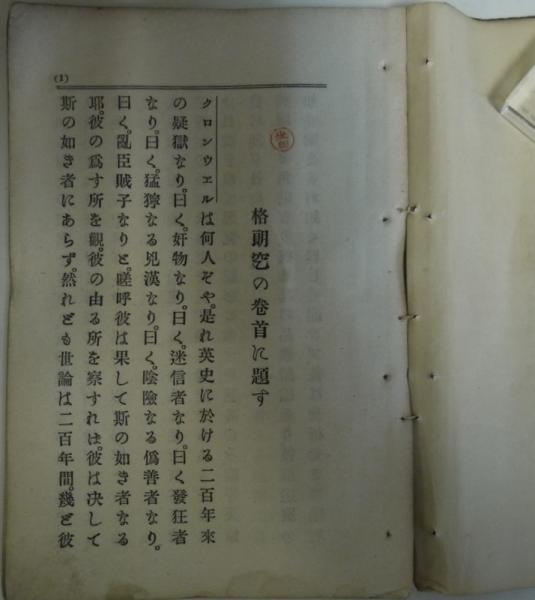 (1)
格朗窓の卷首に題す
クロンウエルは何人ぞや。是れ英史に於ける二百年來
の疑獄なり。曰く。奸物なり。曰く。迷信者なり。曰く發狂者
なり。曰く。猛獰なる兇漢なり。曰く。陰險なる僞善者なり。
曰く。亂臣賊子なりと。嗟呼彼は果して斯の如き者なる
耶。彼の爲す所を觀。彼の由る所を察すれは。彼は决して
斯の如き者にあらず。然れども世論は二百年間。幾ど彼